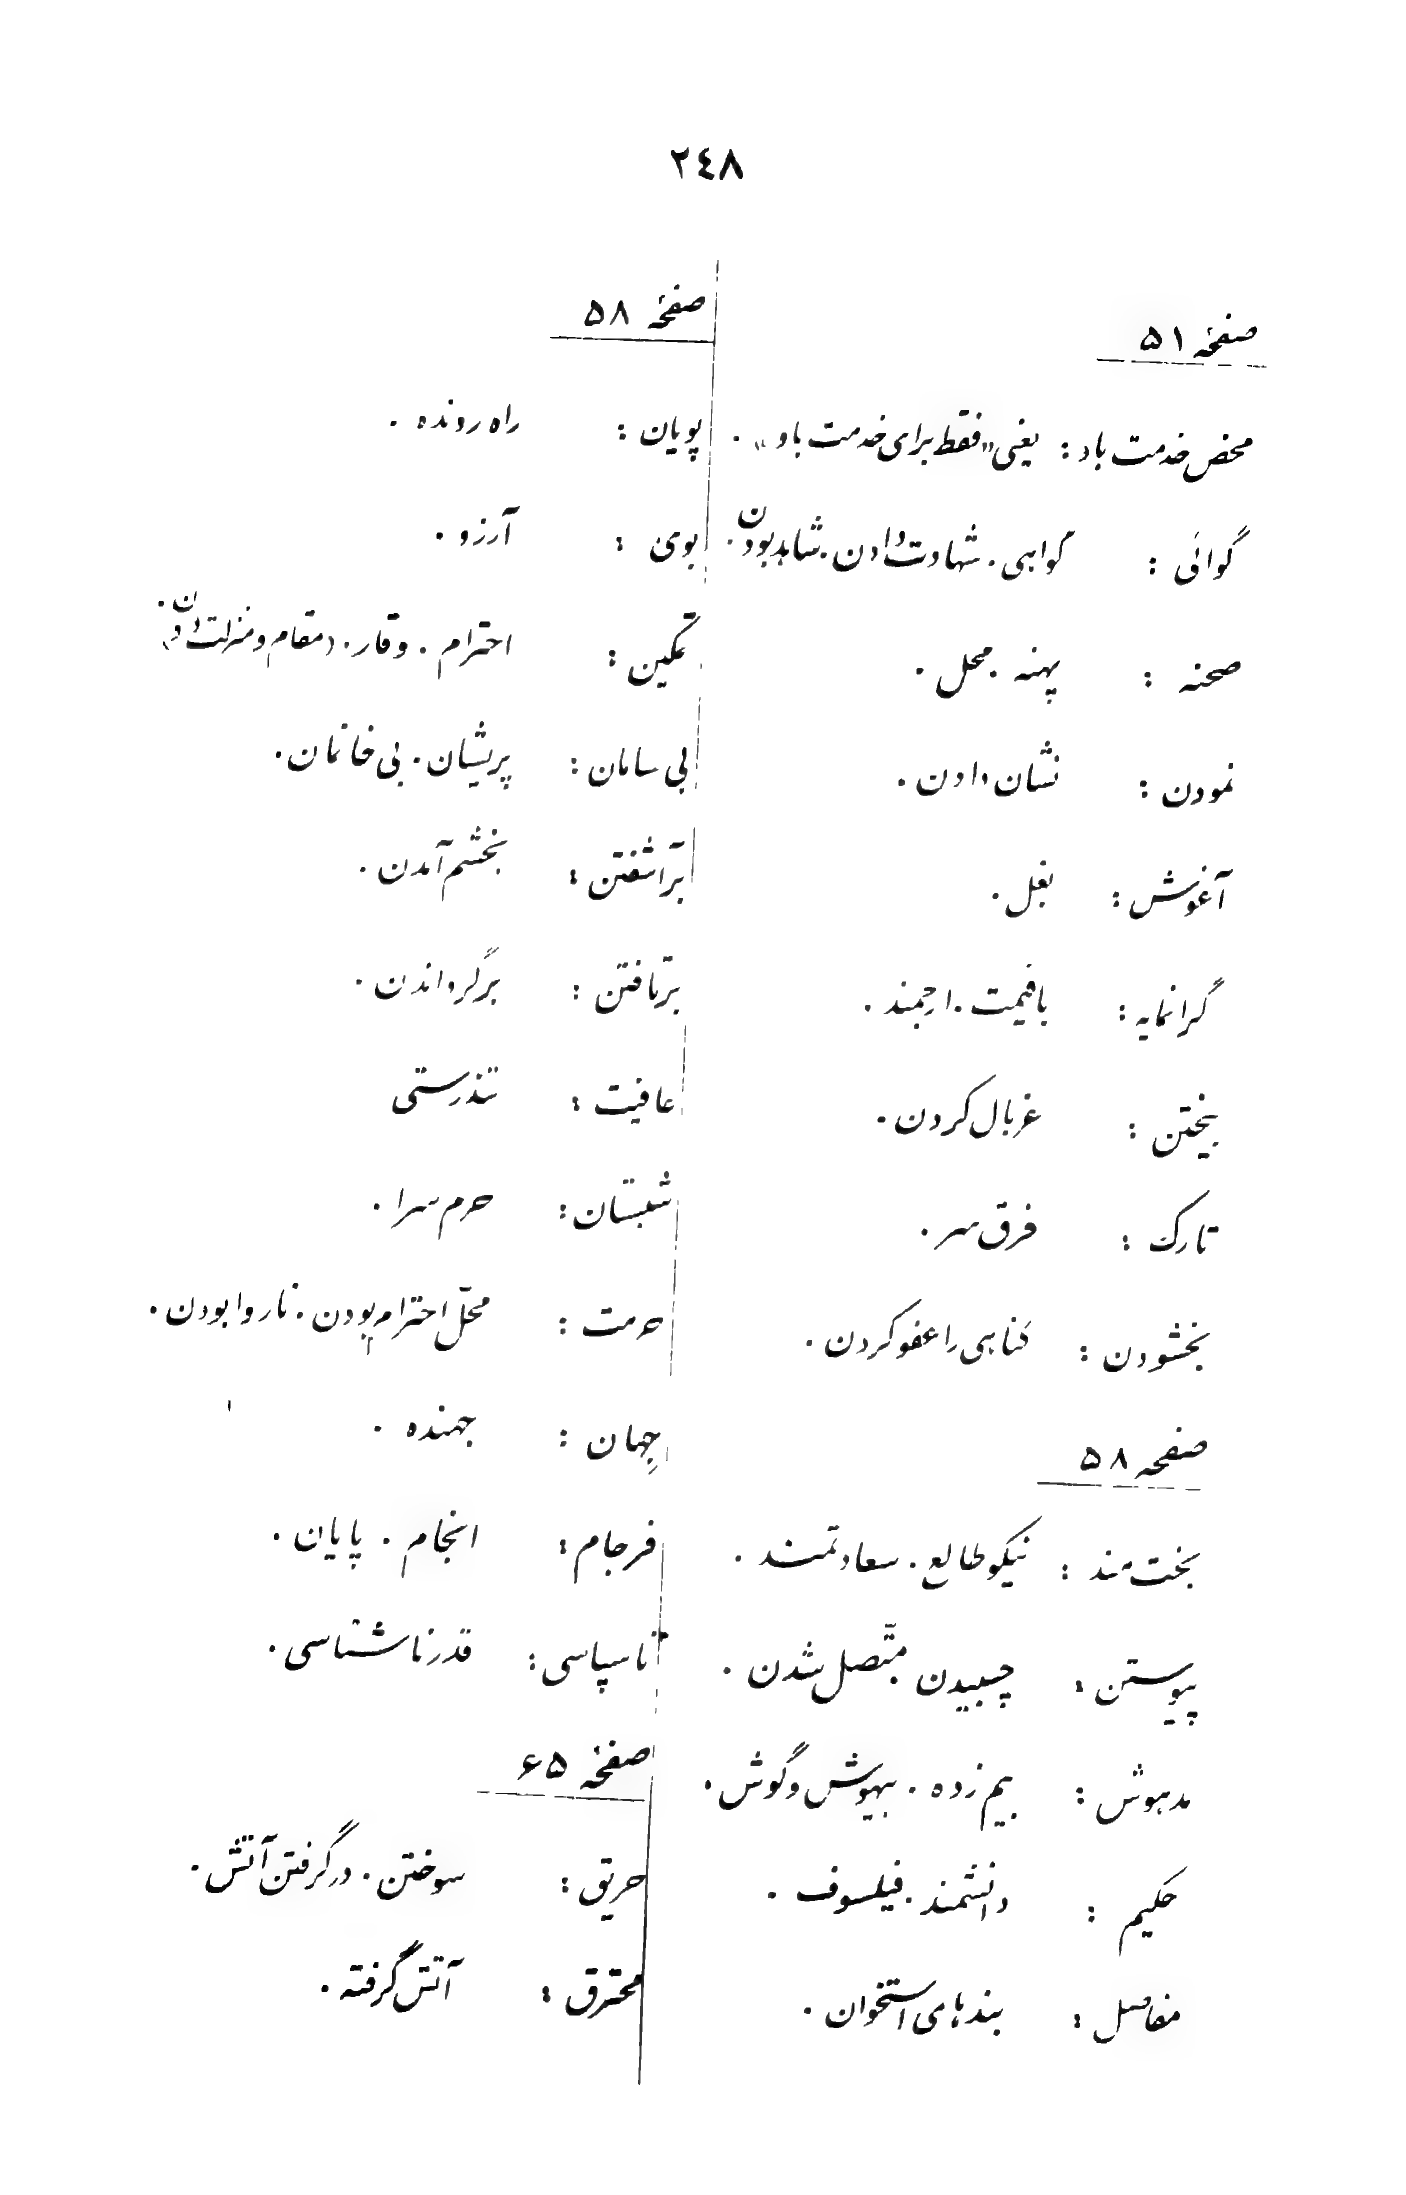 ٢٤٨
صفحهٔ ۵۱
محض خدمت باد : یعنی «فقط برای خدمت باو» .
گوائی : گواهی . شهادت دادن . شاهد بودن .
صحنه : پهنه . محل .
نمودن : نشان دادن .
آغوش : بغل .
گرانمایه : باقیمت . ارجمند .
بیختن : غربال کردن .
تارک : فرق سر .
بخشودن : گناهی را عفو کردن .
صفحه ۵۸
بخت مند : نیکو طالع . سعادتمند .
پیوستن : چسبیدن . متّصل شدن .
مدهوش : بیم زده . بیهوش و گوش .
حکیم : دانشمند . فیلسوف .
مفاصل : بندهای استخوان .
صفحهٔ ۵۸
پویان : راه رونده .
بوی : آرزو .
تمکین : احترام . وقار . (مقام و منزلت دادن) .
بی سامان : پریشان . بی خانمان .
برآشفتن : بخشم آمدن .
برتافتن : برگرداندن .
عافیت : تندرستی
شبستان : حرم سرا .
حرمت : محلّ احترام بودن . ناروا بودن .
جِهان : جهنده .
فرجام : انجام . پایان .
ناسپاسی : قدرناشناسی .
صفحهٔ ۶۵
حریق : سوختن . درگرفتن آتش .
محترق : آتش گرفته .